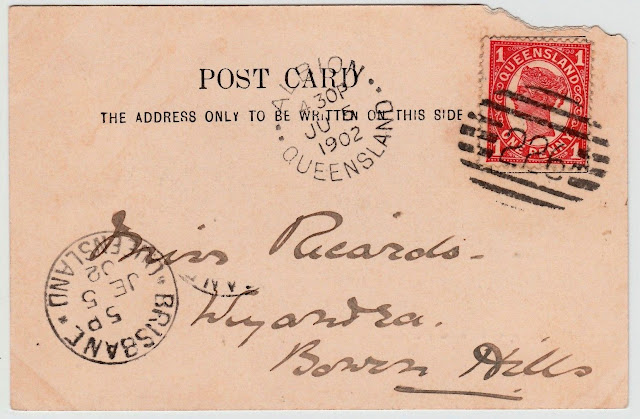 POST CARD
THE ADDRESS ONLY TO BE WRITTEN ON THIS SIDE
ALBION
4 30P
JU 5
1902
QUEENSLAND
1 QUEENSLAND 1
1 ONE PENNY 1
Miss Ricards.
Wyandra.
Bowen Hills
BRISBANE
5 P
5
JE
02
QUEENSLAND